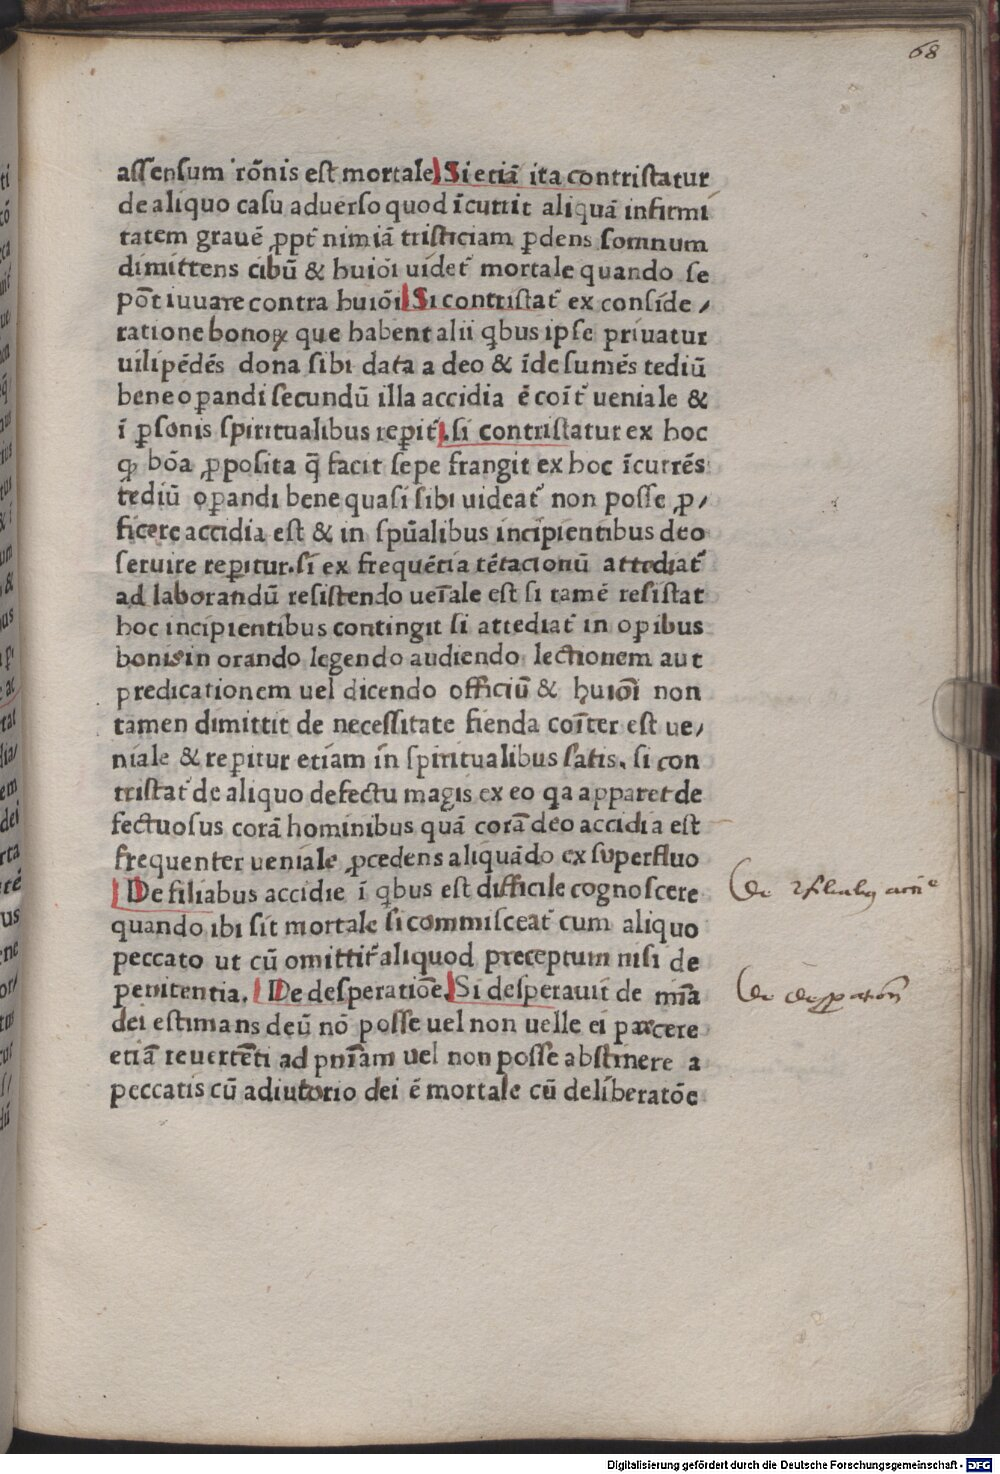 68
aſſenſum rōnis eſt mortale Si etiā ita contriſtatur
de aliquo caſu aduerſo quod īcurrit aliquā infirmi
tatem grauē ꝓpt' nimiā triſticiam ꝑdens ſomnum
dimittens cibū & huiōi uidet' mortale quando ſe
pōt iuuare contra huiōi Si contriſtat' ex conſide /
ratione bonoꝝ que habent alii qbus ipſe priuatur
uilipēdēs dona ſibi data a deo & īde ſumēs tediū
bene oꝑandi ſecundū illa accidia ē coīt' ueniale &
ī ꝑſonis ſpiritualibus reꝑit'. ſi contriſtatur ex hoc
ꝙ bōa ꝓpoſita q̄ facit ſepe frangit ex hoc īcurrēs
tediū oꝑandi bene quaſi ſibi uideat' non poſſe ꝓ /
ficere accidia eſt & in ſpūalibus incipientibus deo
ſeruire reꝑitur. ſi ex frequētia tētacionū attediat'
ad laborandū reſiſtendo uen̄ale eſt ſi tamē reſiſtat
hoc incipientibus contingit ſi attediat' in oꝑibus
bonis in orando legendo audiendo lectionem aut
predicationem uel dicendo officiū & huiōi non
tamen dimittit de neceſſitate fienda coīter eſt ue /
niale & reꝑitur etiam in ſpiritualibus ſatis. ſi con
triſtat' de aliquo defectu magis ex eo qa apparet de
fectuoſus corā hominibus quā corā deo accidia eſt
frequenter ueniale ꝓcedens aliquādo ex ſuperfluo
De filiabus accidie ī qbus eſt difficile cognoſcere
quando ibi ſit mortale ſi commiſceat' cum aliquo
peccato ut cū omittit' aliquod preceptum niſi de
penitentia. De deſperatiōe. Si deſperauit de mīa
dei eſtimans deū nō poſſe uel non uelle ei parcere
etiā reuertēti ad pnīam uel non poſſe abſtinere a
peccatis cū adiutorio dei ē mortale cū deliberatōe
Digitalisierung gefördert durch die Deutsche Forschungsgemeinschaft - DFG